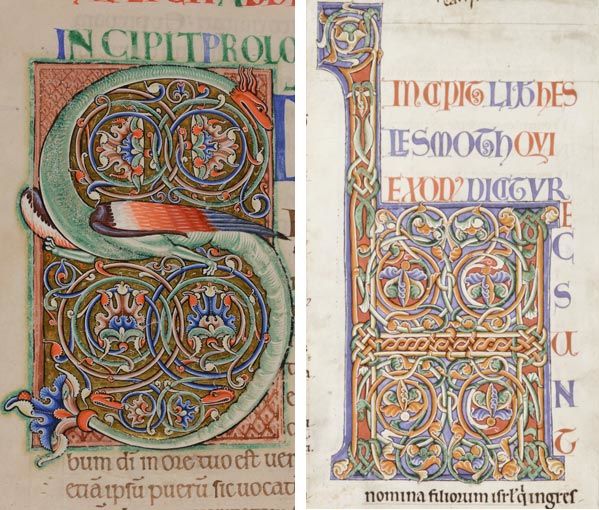 INCIPIT PROLO
S
bum di in ore tuo est uer
etiā ipsū puerū sic uocat
INCIPIT LIB HES
LESMOTH QVI
EXODVˢ DICITVR
H
E
C
S
U
N
T
nomina filiorum isrl' q̇ ingres